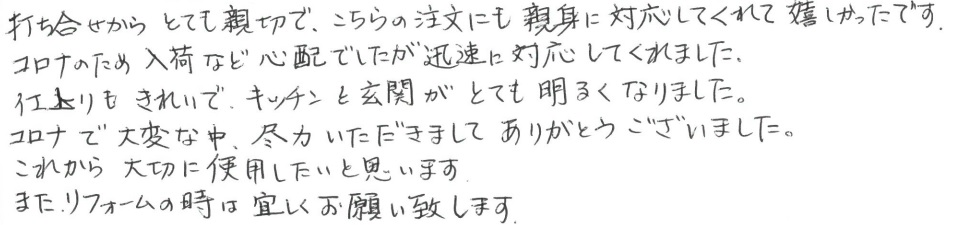 打ち合せから とても親切で、こちらの注文にも 親身に 対応してくれて 嬉しかったです.
コロナのため 入荷など 心配でしたが 迅速に 対応 してくれました.
仕上りも きれいで、キッチンと 玄関が とても 明るく なりました。
コロナで 大変な中、尽力いただきまして ありがとうございました。
これから 大切に 使用したいと思います.
また.リフォームの時は 宜しくお願い致します.